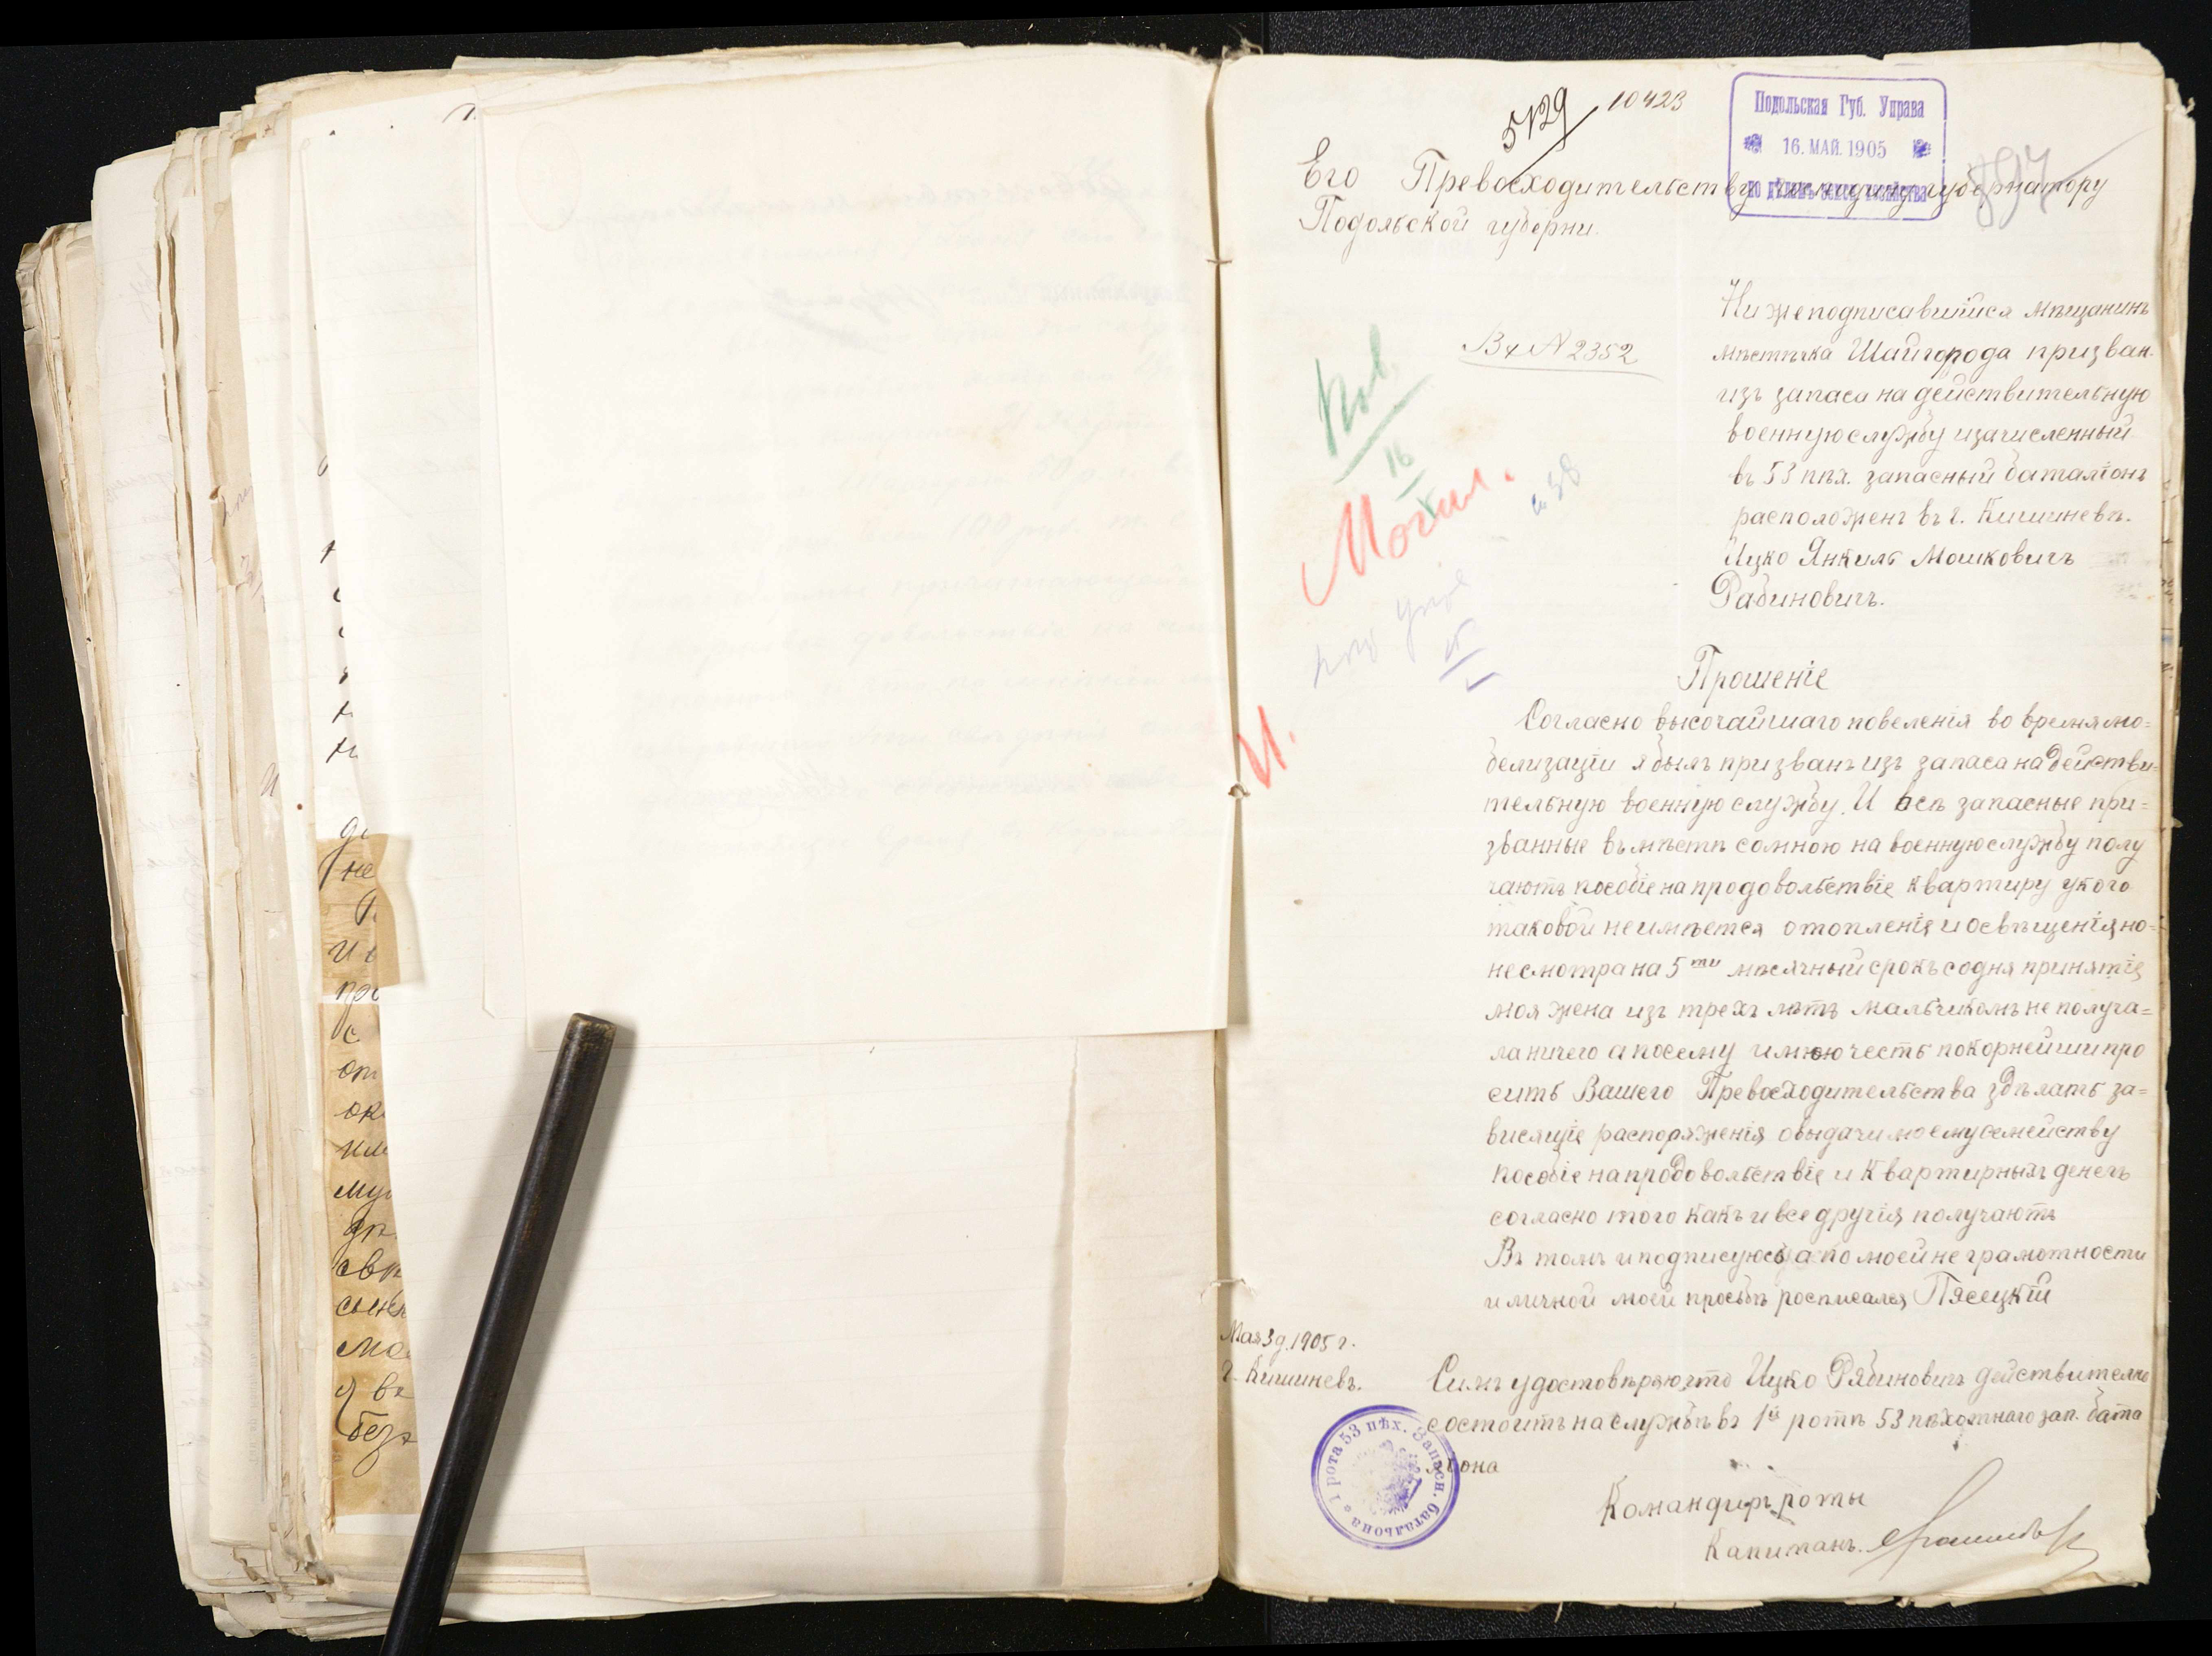 5129
10423
Подольская Губ. Управа
16. МАЙ. 1905
Его Превосходительству господину губернатору
Подольской губерни.
Нижеподписавшийся мѣщанинъ
мѣстѣчка Шайгорода призван.
изъ запаса на действительную
военную службу изачисленный
въ 53 пѣх. запасный баталіонъ
расположенъ въ г. Кишиневѣ.
Ицко Янкиль Мошковичъ
Рабиновичъ.
Вх № 2352
16
Могил.
И.
Прошеніе
Согласно высочайшаго повеленія во время мо=
белизаціи я былъ призванъ изъ запаса на действи=
тельную военную службу. И всѣ запасные при=
званные вьмѣстѣ сомною на военную службу полу
чаютъ пособіе на продовольствіе квартиру укого
таковой не имѣется отопленія и освѣщенія но=
несмотра на 5ти мѣсячный срокъ содня принятія
моя жена изъ трехъ лѣтъ мальчикомъ не получа=
ла ничего а посему имѣю честь покорнейши про
сить Вашего Превосходительства здѣлать за=
висящіе распоряженія овыдачи моему семейству
пособіе на продовольствіе и квартирныхъ денегъ
согласно того какъ и все другія получаютъ
Въ томъ и подписуюсь а по моей не грамотности
и личной моей просьбѣ росписался Пясецкій
Мая 3 д. 1905 г.
г. Кишиневъ.
Симъ удостовѣряю что Ицко Рябиновичъ действително
состоитъ на службѣ въ 1й ротѣ 53 пѣхотнаго зап. бата
льона
1 рота 53 пѣх. Запасн. батальона
Командиръ роты
Капитанъ